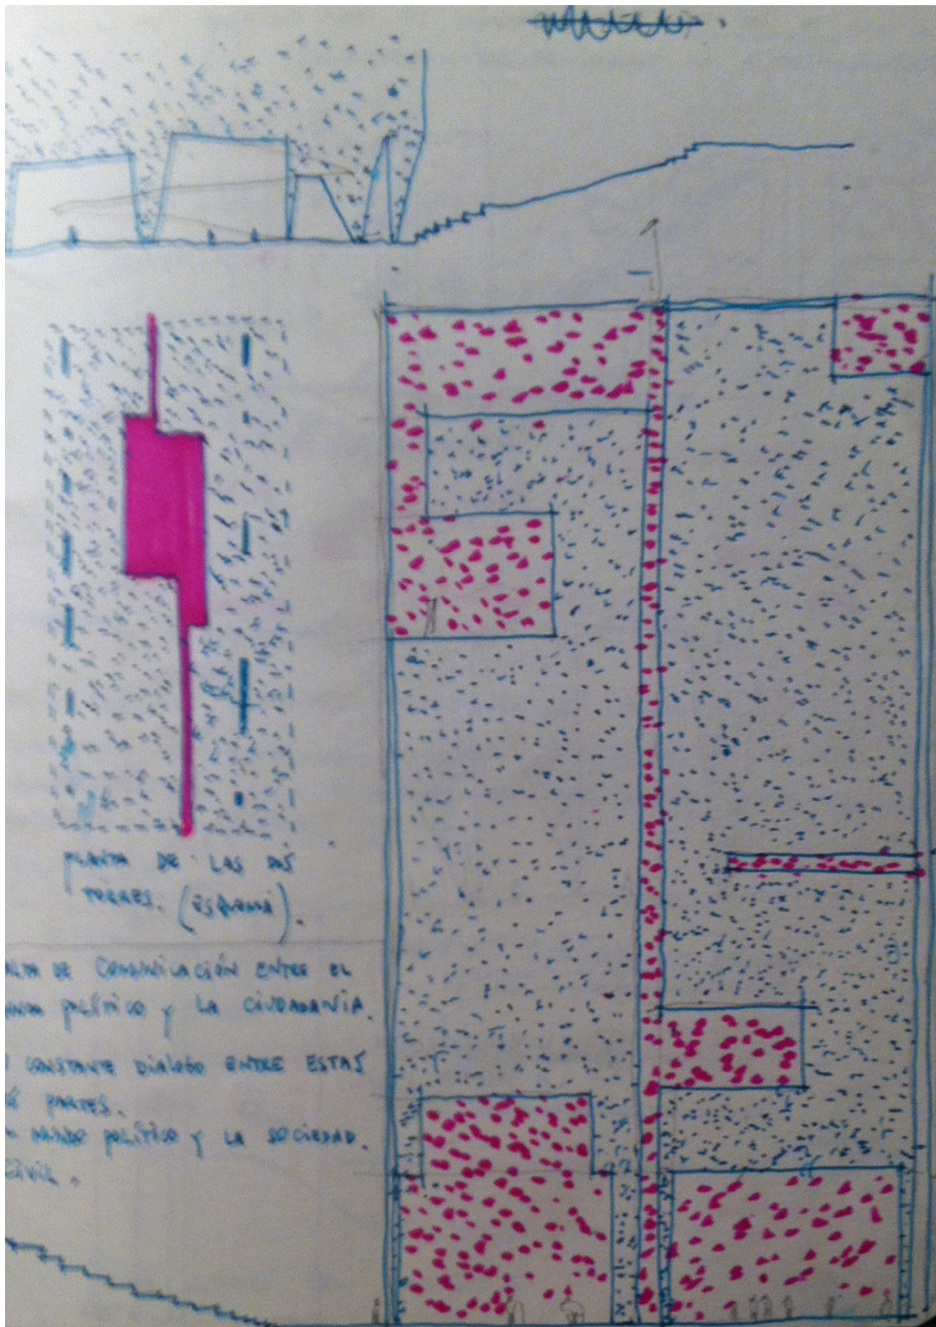 PLANTA DE LAS DOS
TORRES. (ESQUEMA).
DE COMUNICACIÓN ENTRE EL
POLÍTICO y LA CIUDADANÍA.
CONSTANTE DIALOGO ENTRE ESTAS
PARTES.
MUNDO POLÍTICO y LA SOCIEDAD.
CIVIL.